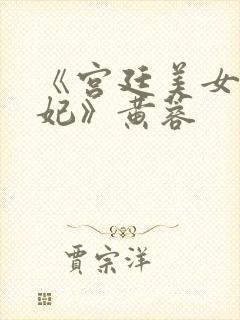 《宫廷美女
妃》黄蓉
贾宗洋